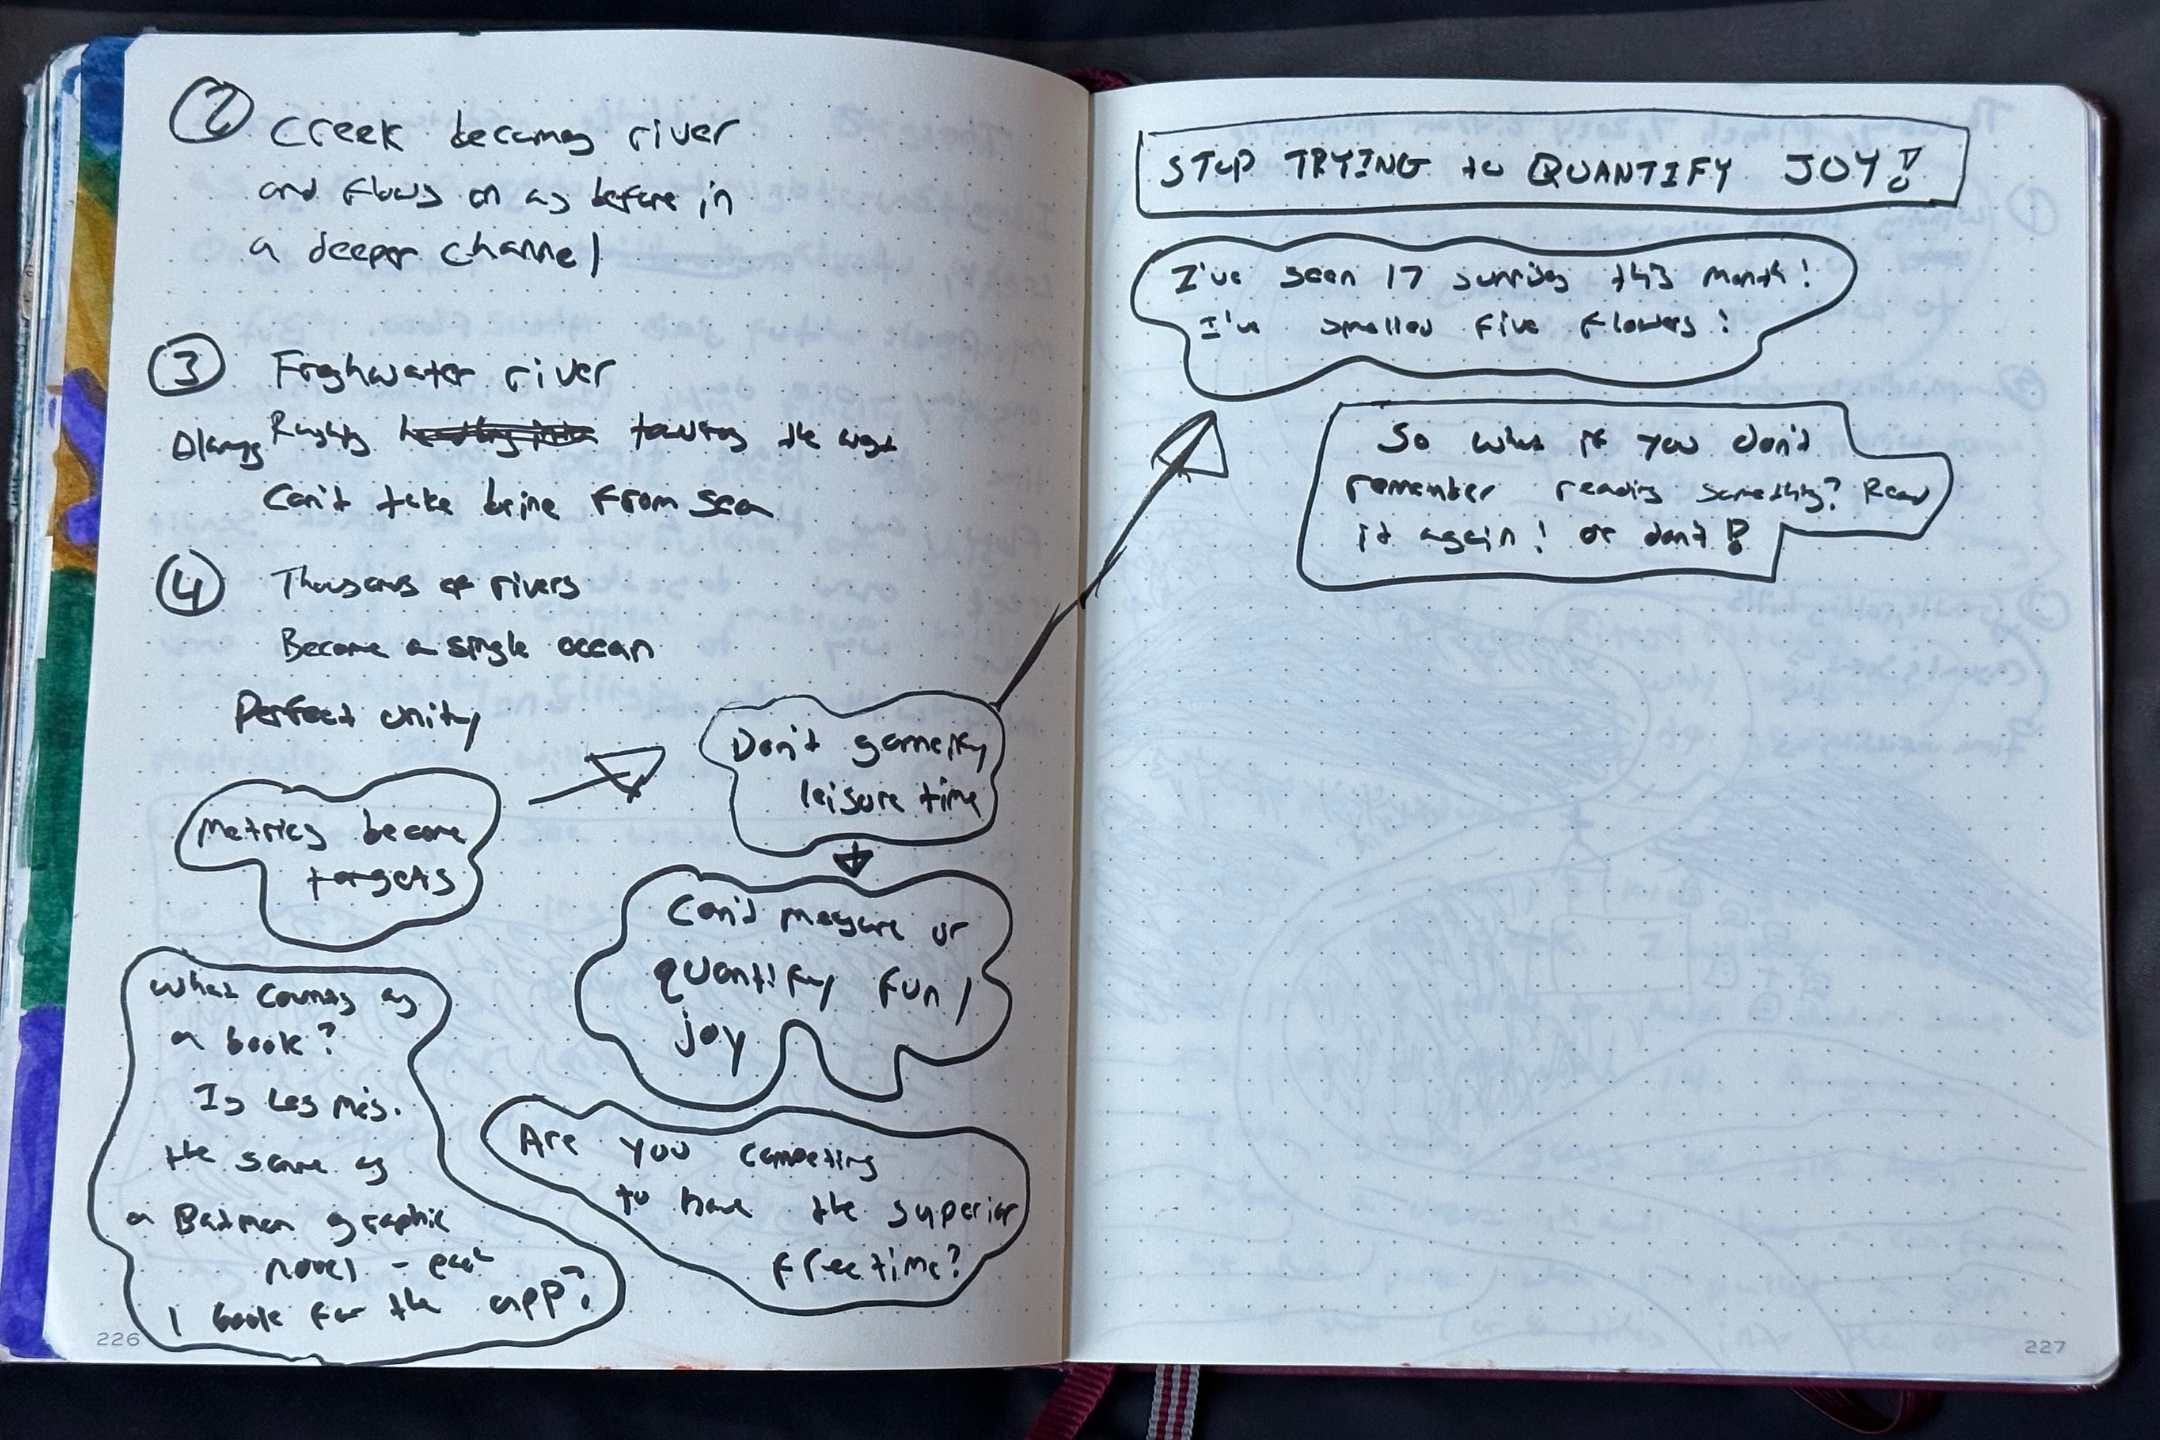 2 Creek becomes river
and flows on as before in
a deeper channel
3 Freshwater river
Always Rushing towards the
Can't take brine from sea
4 Thousands of rivers
Become a single ocean
Perfect unity
Metrics become
targets
Don't gamefky
leisure time
Can't measure or
quantify fun/
joy
What counts as
a book?
Is Les Mis.
the same as
a Batman graphic
novel - each
1 book for the app?
Are you competing
to have the superior
free time?
226
STOP TRYING to QUANTIFY JOY!
I've seen 17 sunrises this month!
I've smelled five flowers!
So what if you don't
remember reading something? Read
it again! or don't!
227